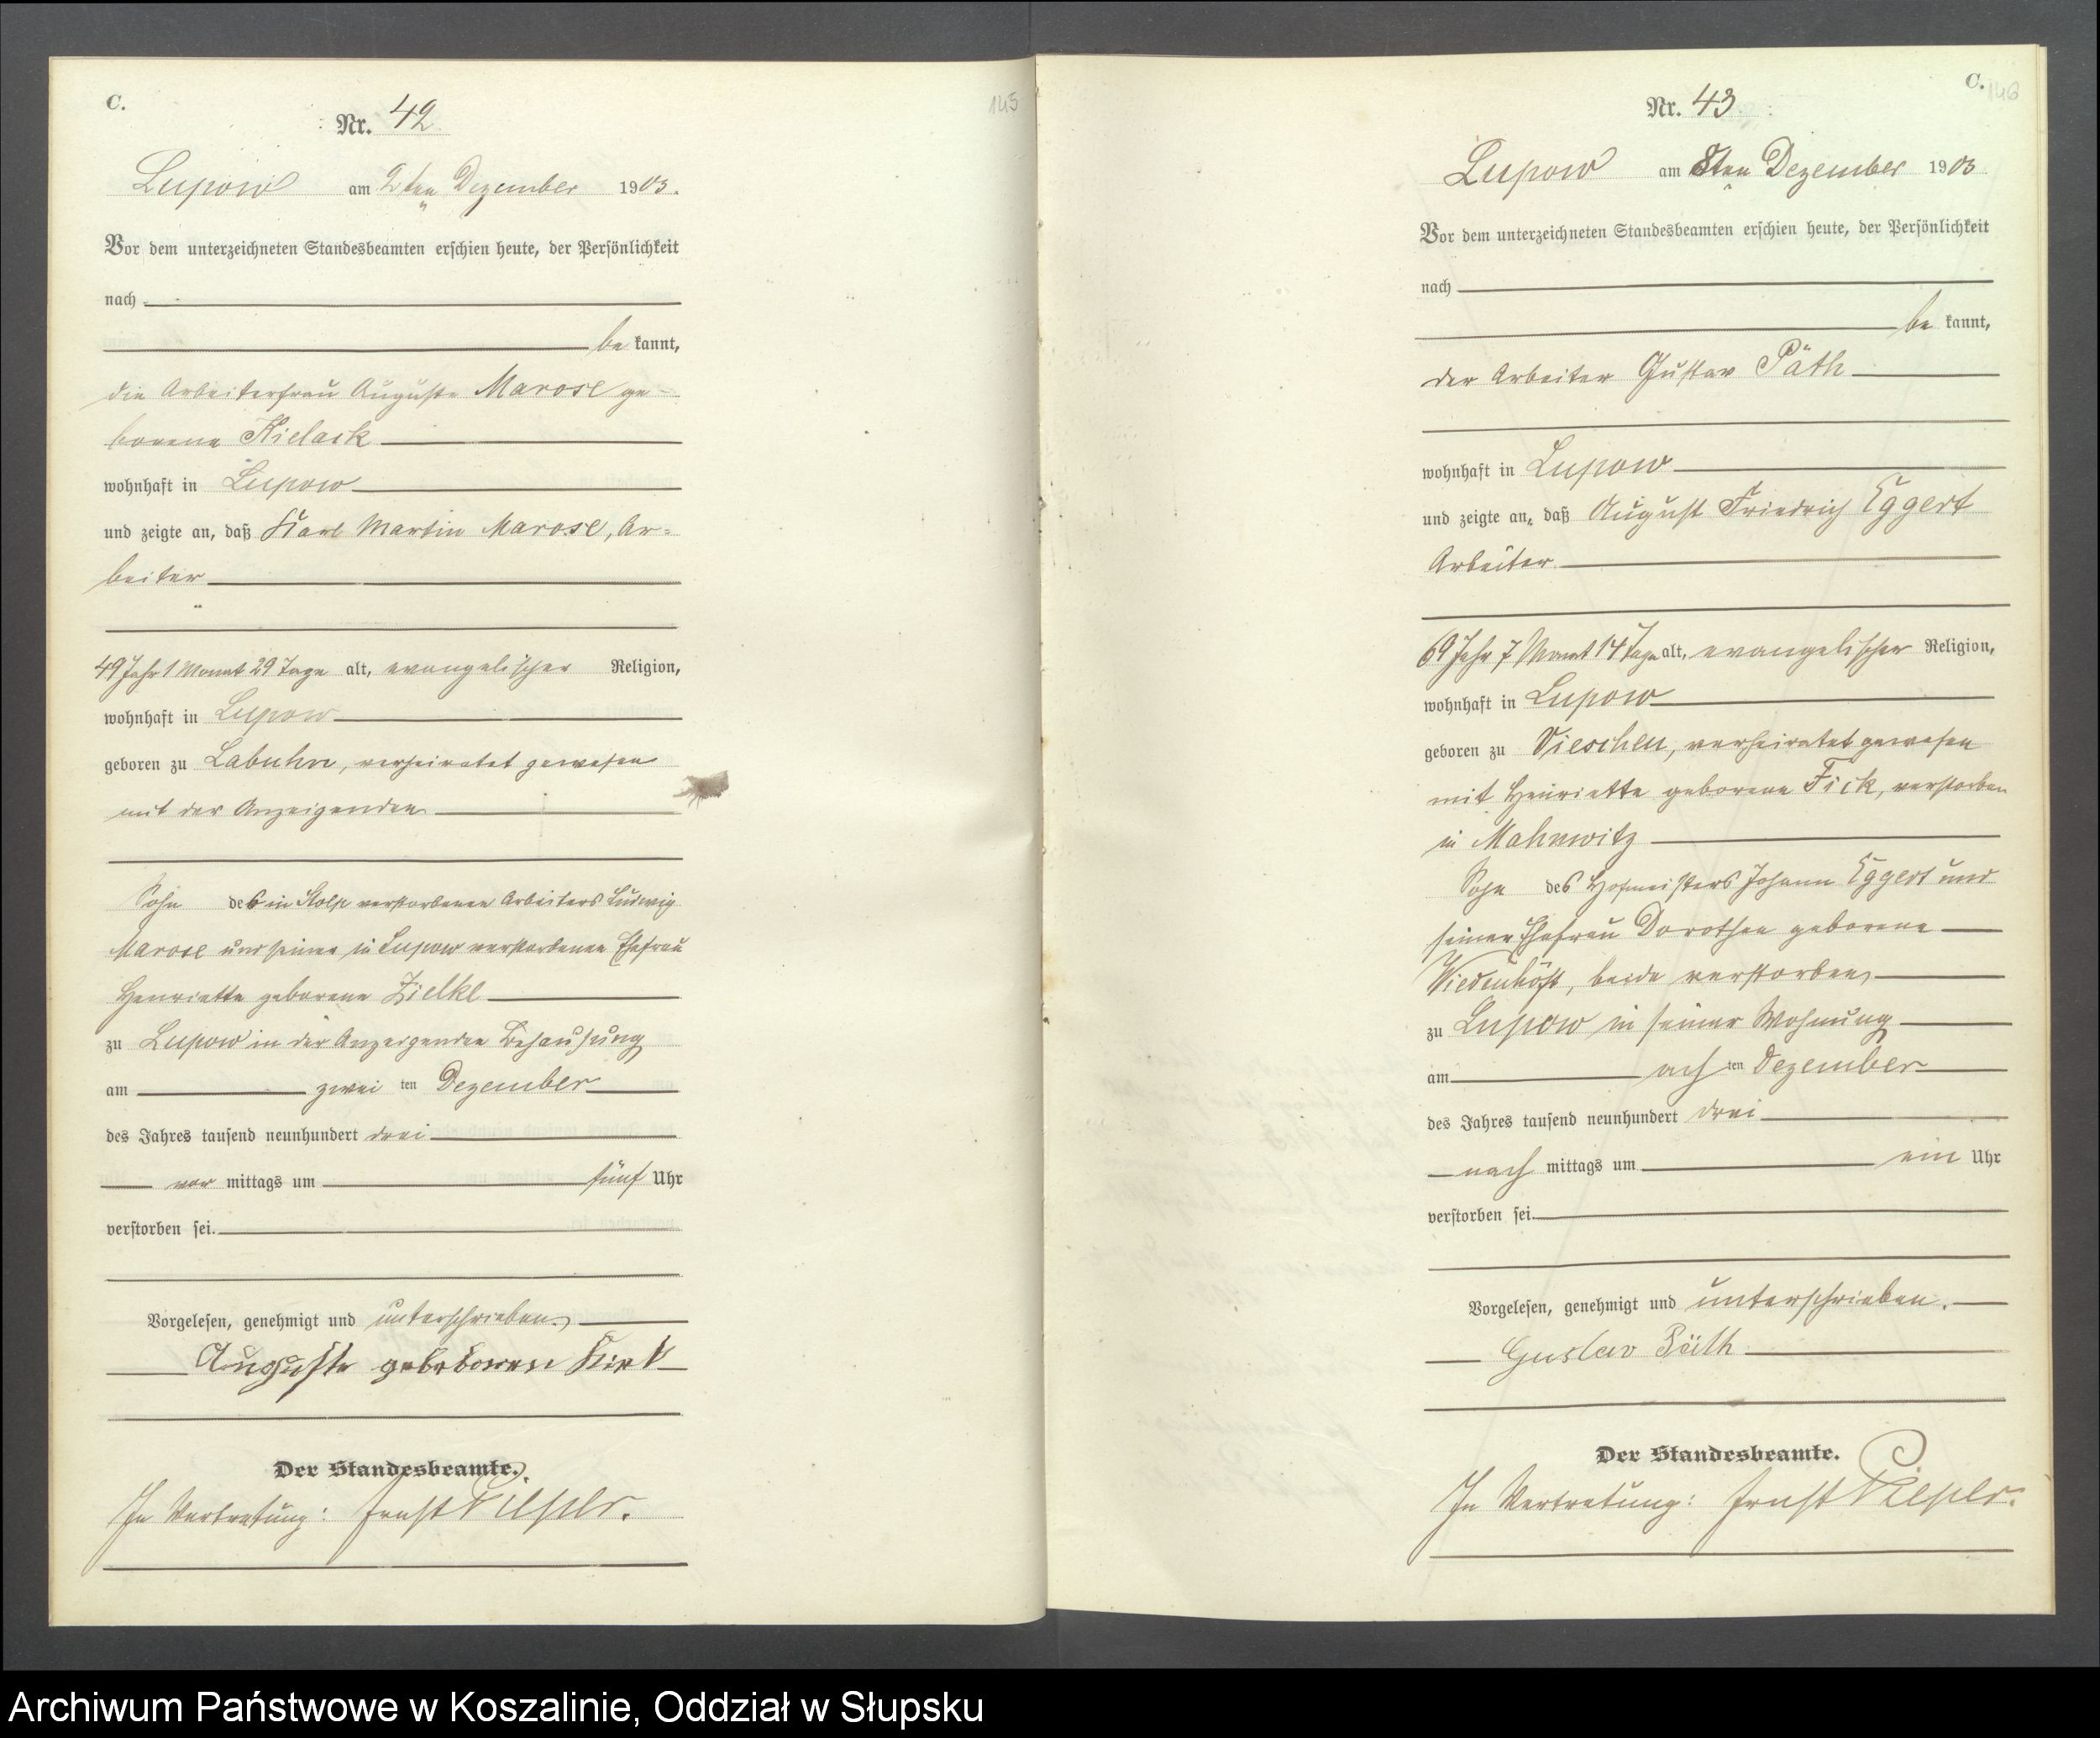 C.
145
Nr. 42
Lupow am 2ten Dezember 1903.
Vor dem unterzeichneten Standesbeamten erschien heute, der Persönlichkeit
nach
be kannt,
die Arbeiterfrau Auguste Marose ge-
borene
wohnhaft in Lupow
und zeigte an, daß Karl Martin Marose, Ar=
beiter
49 Jahr 1 Monat 29 Tage alt, evangelischer Religion,
wohnhaft in Lupow
geboren zu Labuhn, verheiratet gewesen
mit der Anzeigenden
Sohn des in Stolp verstorbenen Arbeiters Ludwig
Marose und seiner in Lupow verstorbenen Ehefrau
Henriette geborene Zielke
zu Lupow in der Anzeigenden Behausung
am zwei ten Dezember
des Jahres tausend neunhundert drei
vor mittags um fünf Uhr
verstorben sei.
Vorgelesen, genehmigt und unterschrieben.
Auguste
Der Standesbeamte.
In Vertretung: Ernst Pieper.
C.
146
Nr. 43
Lupow am 8ten Dezember 1903
Vor dem unterzeichneten Standesbeamten erschien heute, der Persönlichkeit
nach
be kannt,
der Arbeiter Gustav Päth
wohnhaft in Lupow
und zeigte an, daß August Friedrich Eggert
Arbeiter
69 Jahr 7 Monat 14 Tage alt, evangelischer Religion,
wohnhaft in Lupow
geboren zu Vieschen, verheiratet gewesen
mit Henriette geborene Fick, verstorben
in Mahnwitz
Sohn des Hofmeisters Johann Eggert und
seiner Ehefrau Dorothea geborene
Wiedenhöft, beide verstorben,
zu Lupow in seiner Wohnung
am ach ten Dezember
des Jahres tausend neunhundert drei
nach mittags um ein Uhr
verstorben sei.
Vorgelesen, genehmigt und unterschrieben.
Gustav Päth
Der Standesbeamte.
In Vertretung: Ernst Pieper.
Archiwum Państwowe w Koszalinie, Oddział w Słupsku